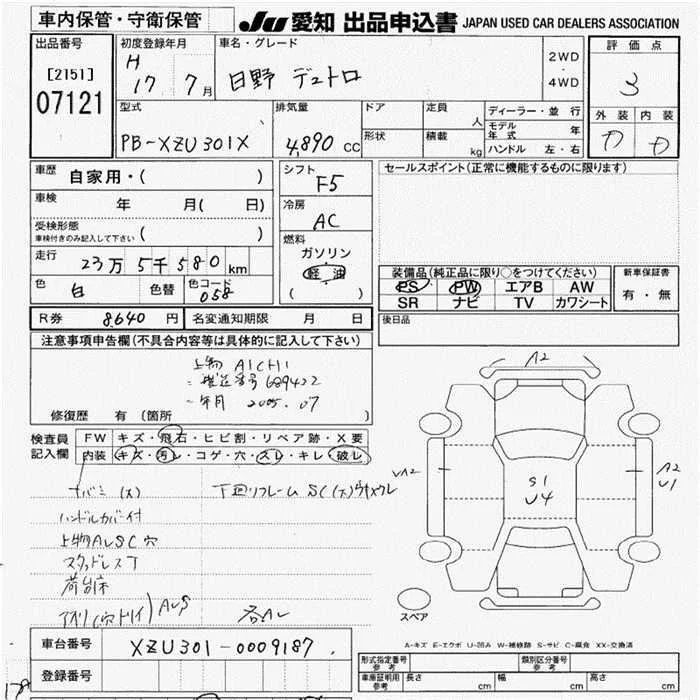 車内保管・守衛保管
JU 愛知 出品申込書 JAPAN USED CAR DEALERS ASSOCIATION
出品番号
[2151]
07121
初度登録年月
H 17 7月
車名・グレード
日野 デュトロ
2WD
・
4WD
評価点
3
外装 内装
型式
PB-XZU301X
排気量
4,890 cc
ドア
形状
定員
人
積載
kg
ディーラー・並行
モデル年式 年
ハンドル 左・右
車歴
自家用・( )
車検 年 月( 日)
受検形態
車検付きのみ記入して下さい ( )
走行
23万5千580km
色
白
色替
色コード
058
シフト
F5
冷房
AC
燃料
ガソリン
軽油
( )
セールスポイント(正常に機能するものに限ります)
装備品(純正品に限り○をつけてください)
PS PW エアB AW
SR ナビ TV カワシート
新車保証書
有・無
R券 8640円 名変通知期限 月 日
後日品
注意事項申告欄(不具合内容等は具体的に記入して下さい)
上物 AICHI
〃 製造番号 689422
〃 年月 2005.07
修復歴 有 (箇所 )
検査員
記入欄
FW キズ・飛石・ヒビ割・リペア跡・X要
内装 キズ・汚レ・コゲ・穴・スレ・キレ・破レ
ハンドルカバー付
上物AUSC穴
スタッドレスT
荷台床
A2
A2
U1
S1
U4
スペア
A-キズ E-エクボ U-凹み W-補修跡 S-サビ C-腐食 XX-交換済
車台番号 XZU301-0009187
登録番号
型式指定番号
参考
類別区分番号
参考
車庫証明用
参考
長さ cm 幅 cm 高さ cm